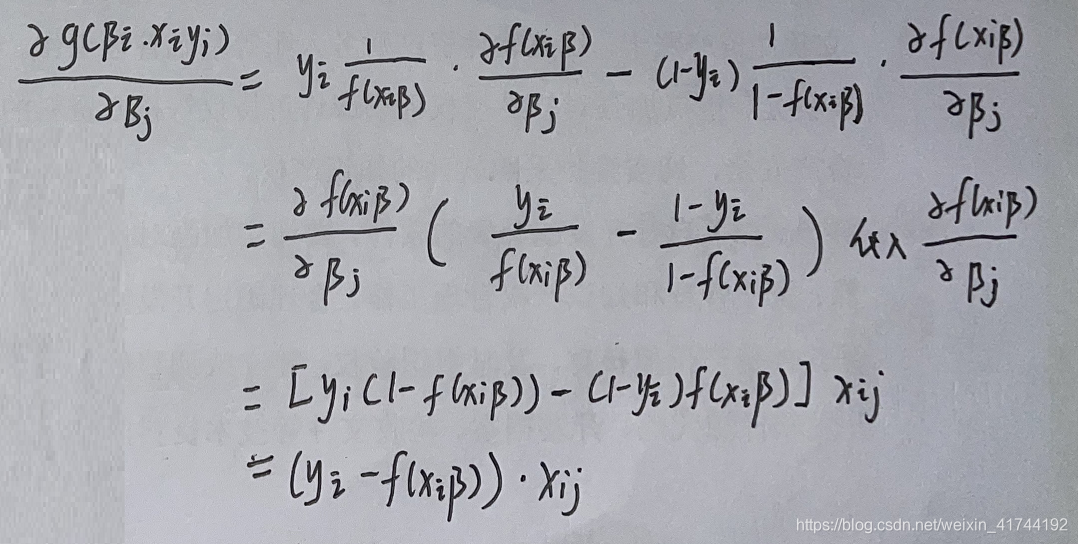 ∂g(βi·xiyi)/∂βj = yi 1/f(xiβ) · ∂f(xiβ)/∂βj − (1−yi) 1/(1−f(xiβ)) · ∂f(xiβ)/∂βj
= ∂f(xiβ)/∂βj ( yi/f(xiβ) − (1−yi)/(1−f(xiβ)) ) 代入 ∂f(xiβ)/∂βj
= [yi(1−f(xiβ))−(1−yi)f(xiβ)] xij
= (yi−f(xiβ))·xij
https://blog.csdn.net/weixin_41744192